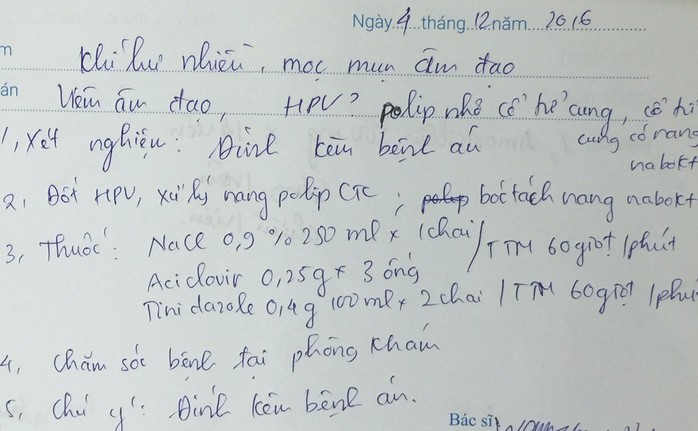 Ngày 4 tháng 12 năm 2016
m khí hư nhiều, mọc mụn âm đạo
án Viêm âm đạo, HPV? polip nhỏ cổ tử cung, cổ tử cung có nang nabokt
1, Xét nghiệm: Đính kèm bệnh án
2, Đốt HPV, xử lý nang polip CTC; bóc tách nang nabokt
3, Thuốc: NaCl 0,9% 250 ml x 1 chai / TTM 60 giọt / phút
Aciclovir 0,25g x 3 ống
Tinidazole 0,4g 100ml x 2 chai / TTM 60 giọt / phút
4, Chăm sóc bệnh tại phòng khám
5, Chú ý: Đính kèm bệnh án.
Bác sĩ